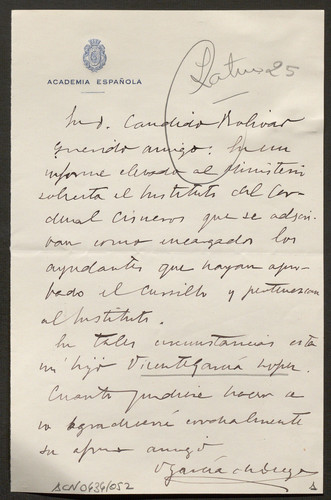 ACADEMIA ESPAÑOLA
Latín 25
Sr. D. Candido Bolivar
Querido amigo: En un
informe elevado al Ministerio
solicita el Instituto del Car-
denal Cisneros que se adscri-
ban como encargados los
ayudantes que hayan apro-
bado el Cursillo y pertenezcan
al Instituto.
En tales circunstancias esta
mi hijo Vicente García
Cuanto pudiese hacer
lo agradecerá cordialmente
su afmo amigo
V García de Diego
ACN0434/052